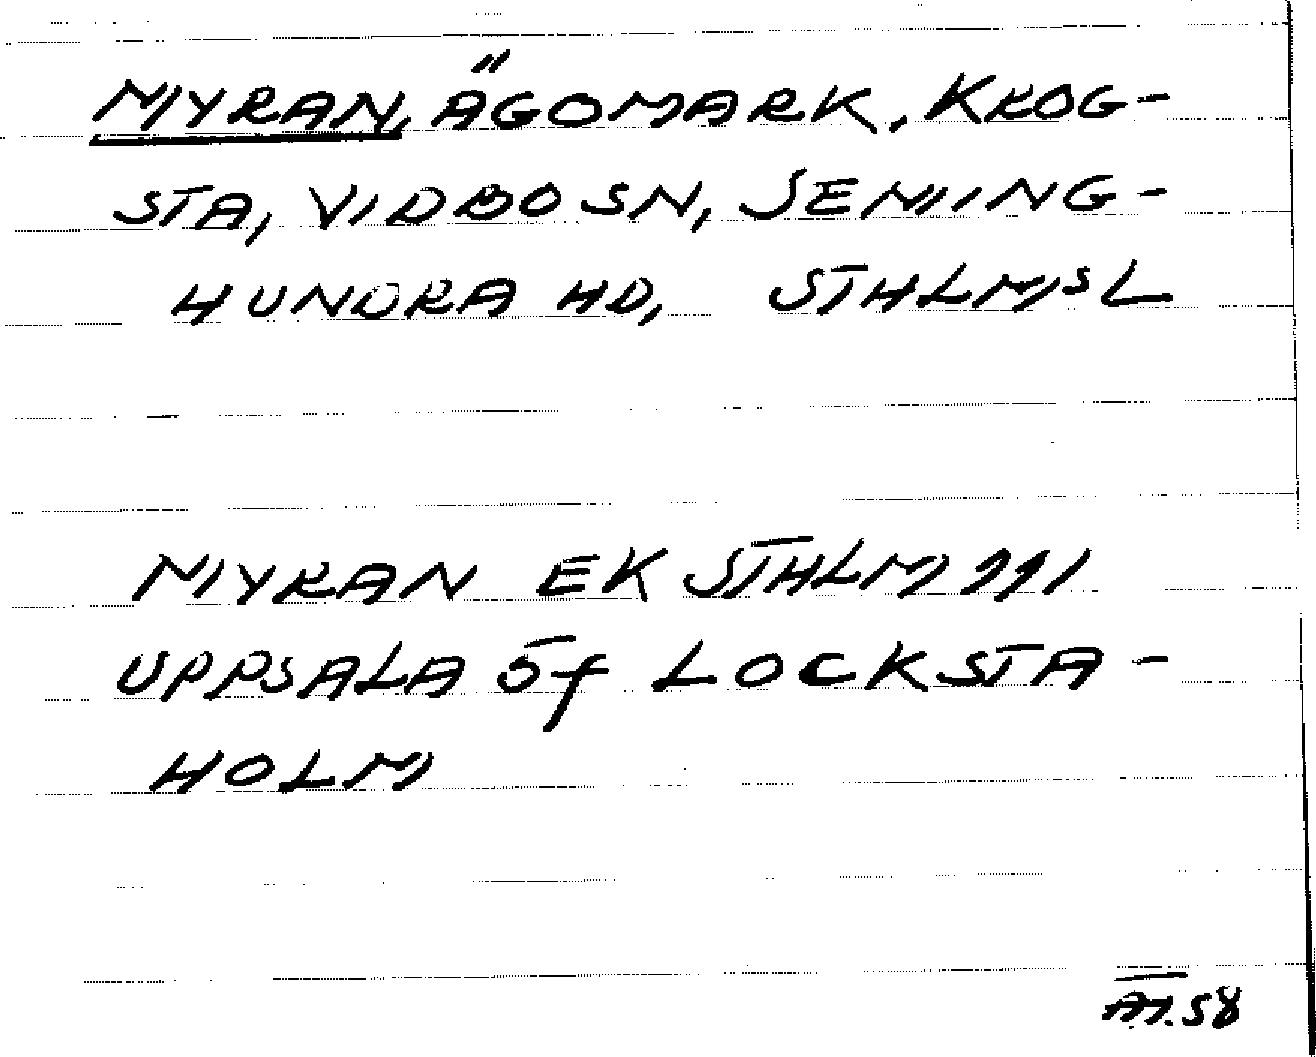 MYRAN, ÄGOMARK, KROG-
STA, VIDBO SN, SEMING-
HUNDRA HD, STHLMS L
MYRAN EK STHLM 111
UPPSALA 5f LOCKSTA-
HOLM
58